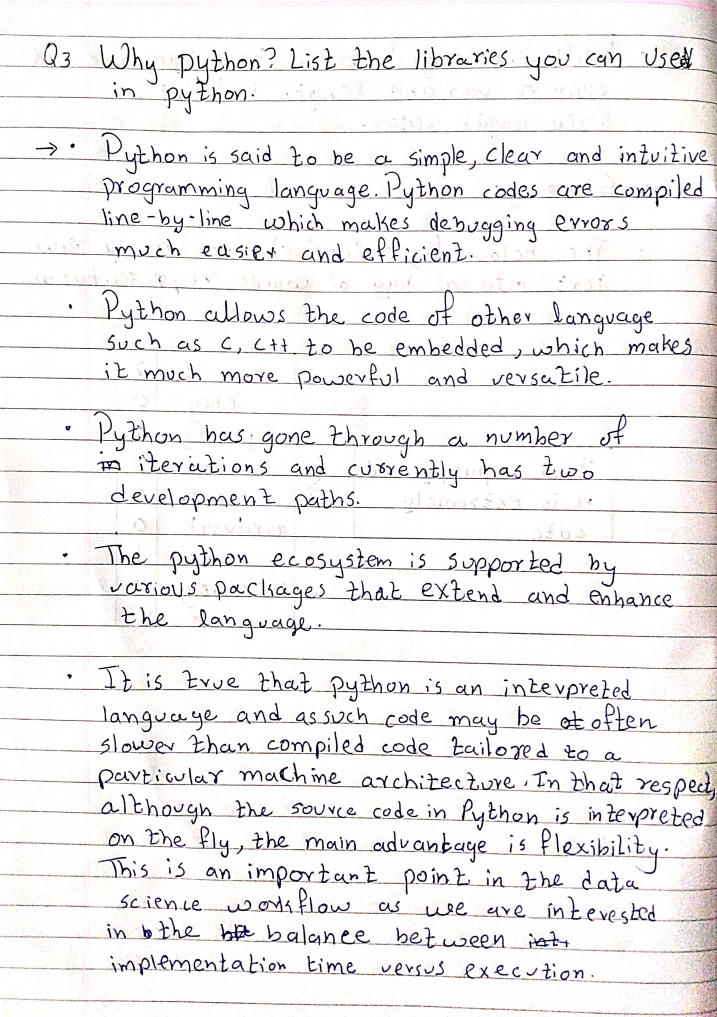 Q3 Why python? List the libraries you can used
in python.
→ • Python is said to be a simple, clear and intuitive
programming language. Python codes are compiled
line-by-line which makes debugging errors
much easier and efficient.
• Python allows the code of other language
such as C, C++ to be embedded, which makes
it much more powerful and versatile.
• Python has gone through a number of
iterations and currently has two
development paths.
• The python ecosystem is supported by
various packages that extend and enhance
the language.
• It is true that python is an interpreted
language and as such code may be often
slower than compiled code tailored to a
particular machine architecture. In that respect,
although the source code in Python is interpreted
on the fly, the main advantage is flexibility.
This is an important point in the data
science workflow as we are interested
in the balance between
implementation time versus execution.